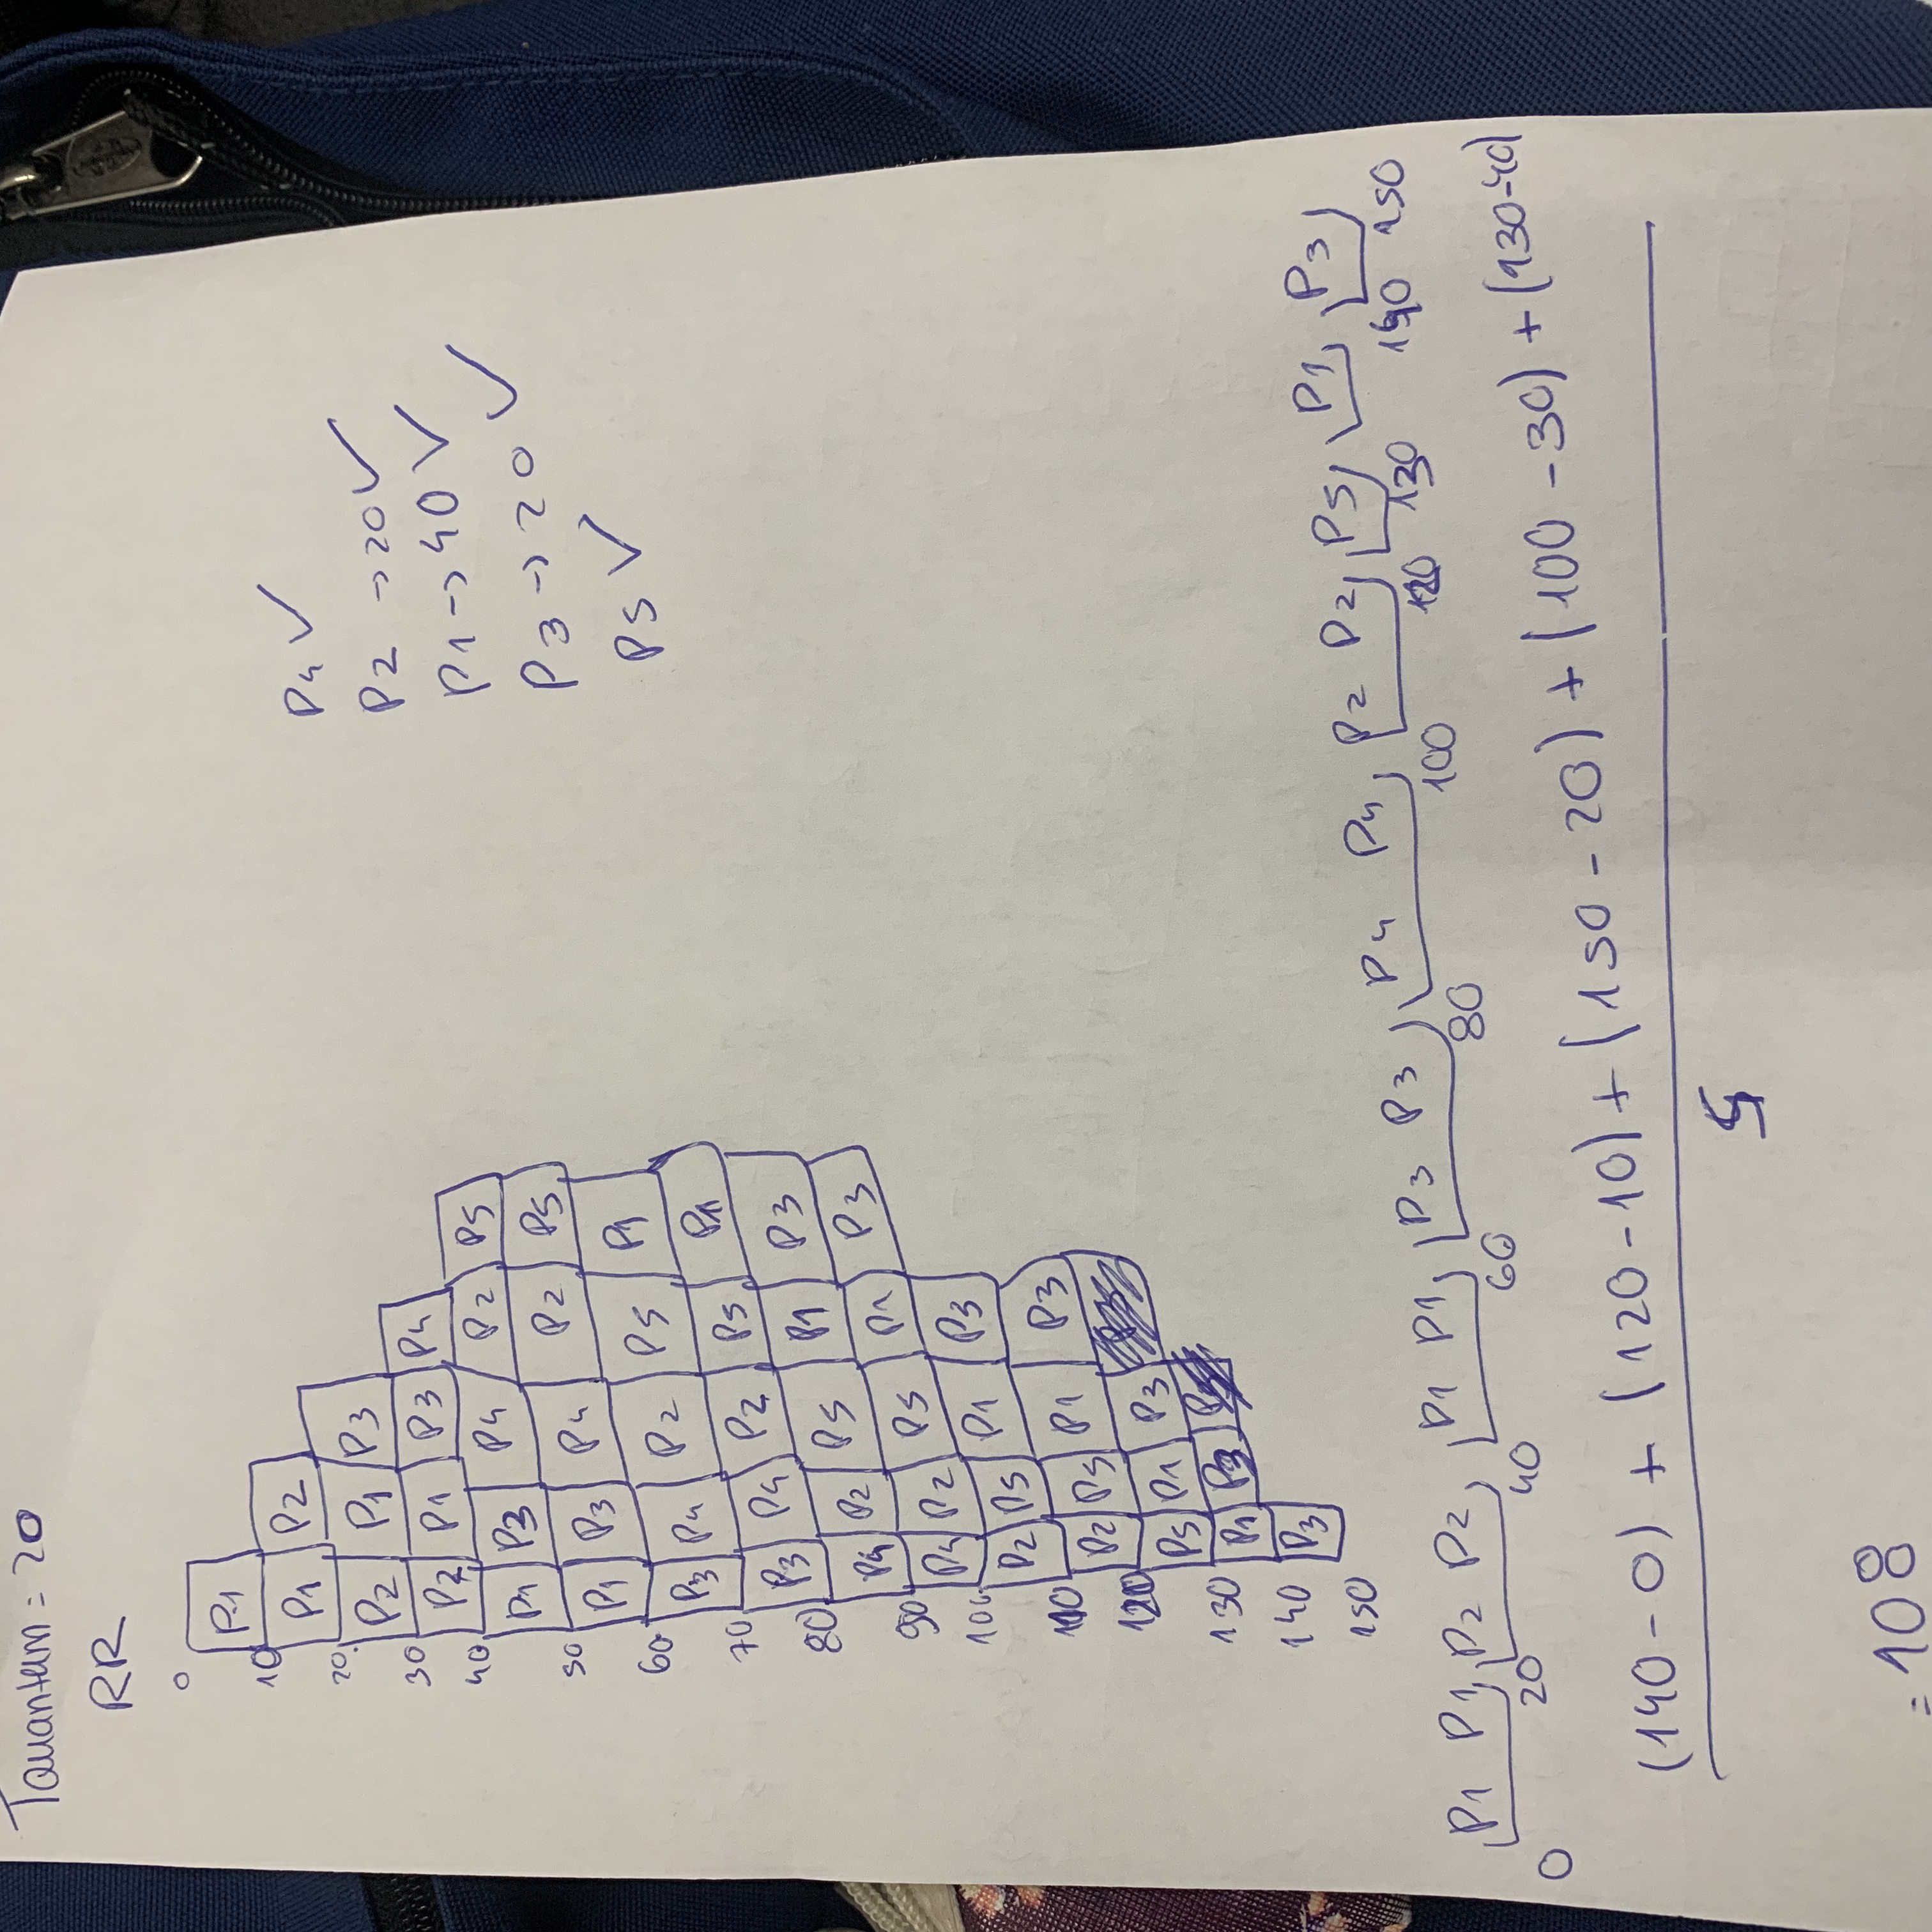 Tquantum = 20
RR
0
P1
10
P1 P2
20
P2 P1 P3
30
P2 P1 P3 P4
40
P1 P3 P4 P2 P5
50
P1 P3 P4 P2 P5
60
P3 P4 P2 P5 P1
70
P3 P4 P2 P5 P1
80
P4 P2 P5 P1 P3
90
P4 P2 P5 P1 P3
100
P2 P5 P1 P3
110
P2 P5 P1 P3
120
P5 P1 P3
130
P1 P3
140
P3
150
P4 ✓
P2 → 20 ✓
P1 → 40 ✓
P3 → 20 ✓
P5 ✓
P1 P1 P2 P2 P1 P1 P3 P3 P4 P4 P2 P2 P5 P1 P3
0 20 40 60 80 100 120 130 140 150
(140 - 0) + (120 - 10) + (150 - 20) + (100 - 30) + (130 - 40)
5
= 108